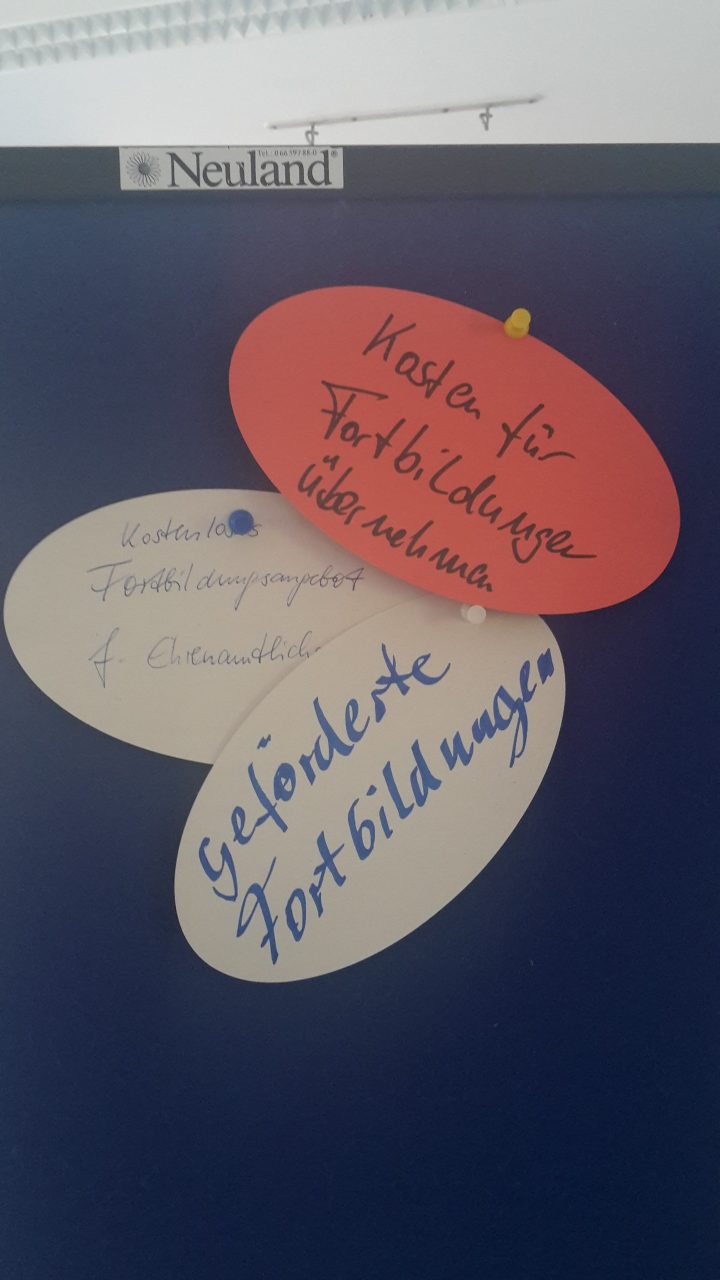 Neuland
Kosten für
Fortbildungen
übernehmen
Kostenloses
Fortbildungsangebot
f. Ehrenamtliche
geförderte
Fortbildungen